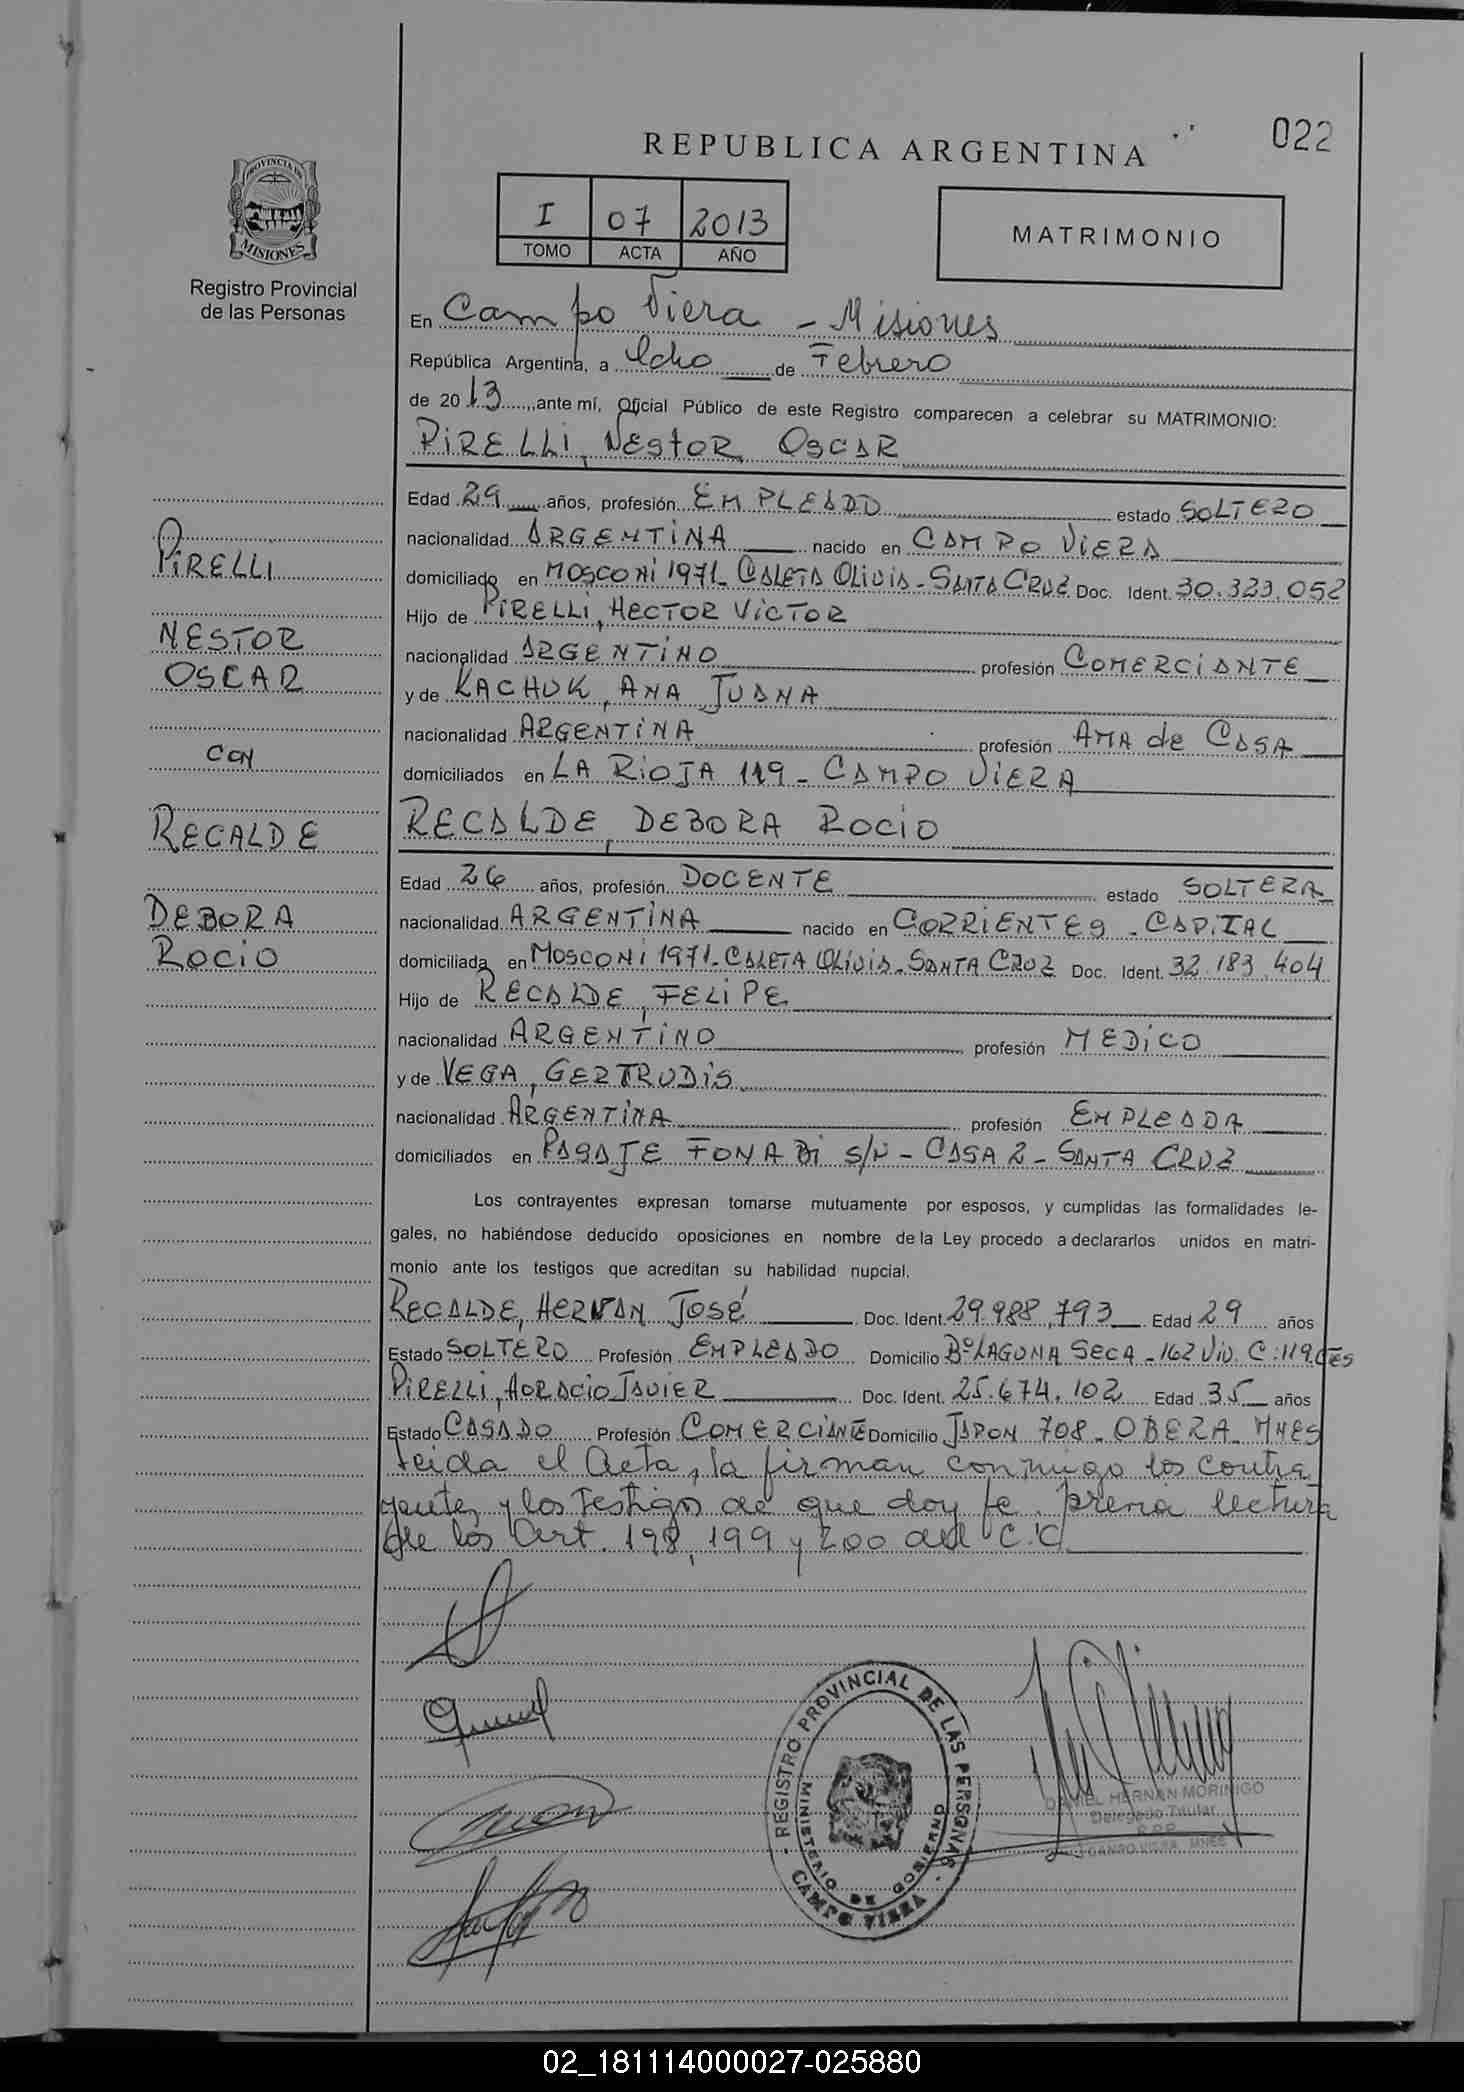 022
REPUBLICA ARGENTINA
PROVINCIA DE
MISIONES
Registro Provincial
de las Personas
I 07 2013
TOMO ACTA AÑO
MATRIMONIO
En Campo Viera - Misiones
República Argentina, a Ocho de Febrero
de 2013, ante mí, Oficial Público de este Registro comparecen a celebrar su MATRIMONIO:
PIRELLI, NESTOR OSCAR
Edad 29 años, profesión EMPLEADO estado SOLTERO
nacionalidad ARGENTINA nacido en CAMPO VIERA
domiciliado en MOSCONI 1971 - CALETA OLIVIA - SANTA CRUZ Doc. Ident. 30.323.052
Hijo de PIRELLI, HECTOR VICTOR
nacionalidad ARGENTINO profesión COMERCIANTE
y de KACHUK, ANA JUANA
nacionalidad ARGENTINA profesión AMA de CASA
domiciliados en LA RIOJA 119 - CAMPO VIERA
RECALDE, DEBORA ROCIO
Edad 26 años, profesión DOCENTE estado SOLTERA
nacionalidad ARGENTINA nacido en CORRIENTES - CAPITAL
domiciliada en MOSCONI 1971 - CALETA OLIVIA - SANTA CRUZ Doc. Ident. 32.183.404
Hijo de RECALDE, FELIPE
nacionalidad ARGENTINO profesión MEDICO
y de VEGA, GERTRUDIS
nacionalidad ARGENTINA profesión EMPLEADA
domiciliados en PASAJE FONABI S/N - CASA 2 - SANTA CRUZ
Los contrayentes expresan tomarse mutuamente por esposos, y cumplidas las formalidades le-
gales, no habiéndose deducido oposiciones en nombre de la Ley procedo a declararlos unidos en matri-
monio ante los testigos que acreditan su habilidad nupcial.
RECALDE, HERNAN JOSÉ Doc. Ident. 29.988.793 Edad 29 años
Estado SOLTERO Profesión EMPLEADO Domicilio Bº LAGUNA SECA - 162 Viv. C:119 CTES
PIRELLI, HORACIO JAVIER Doc. Ident. 25.674.102 Edad 35 años
Estado CASADO Profesión COMERCIANTE Domicilio JAPON 708 - OBERA - MNES
Leida el Acta, la firman conmigo los contra
yentes y los testigos de que doy fe. previa lectura
de los Art. 198, 199 y 200 del C.C
PIRELLI
NESTOR
OSCAR
CON
RECALDE
DEBORA
ROCIO
REGISTRO PROVINCIAL DE LAS PERSONAS
MINISTERIO DE GOBIERNO
CAMPO VIERA
DANIEL HERNAN MORINIGO
Delegado Titular
R.P.P.
CAMPO VIERA - MNES
02_181114000027-025880